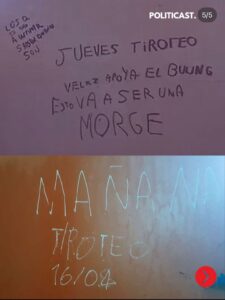 POLITICAST. 5/5
JUEVES TiROTEO
VELEZ APOYA EL BULING
ESTO VA A SER UNA
MORGE
MAÑANA
TIROTEO
16/04